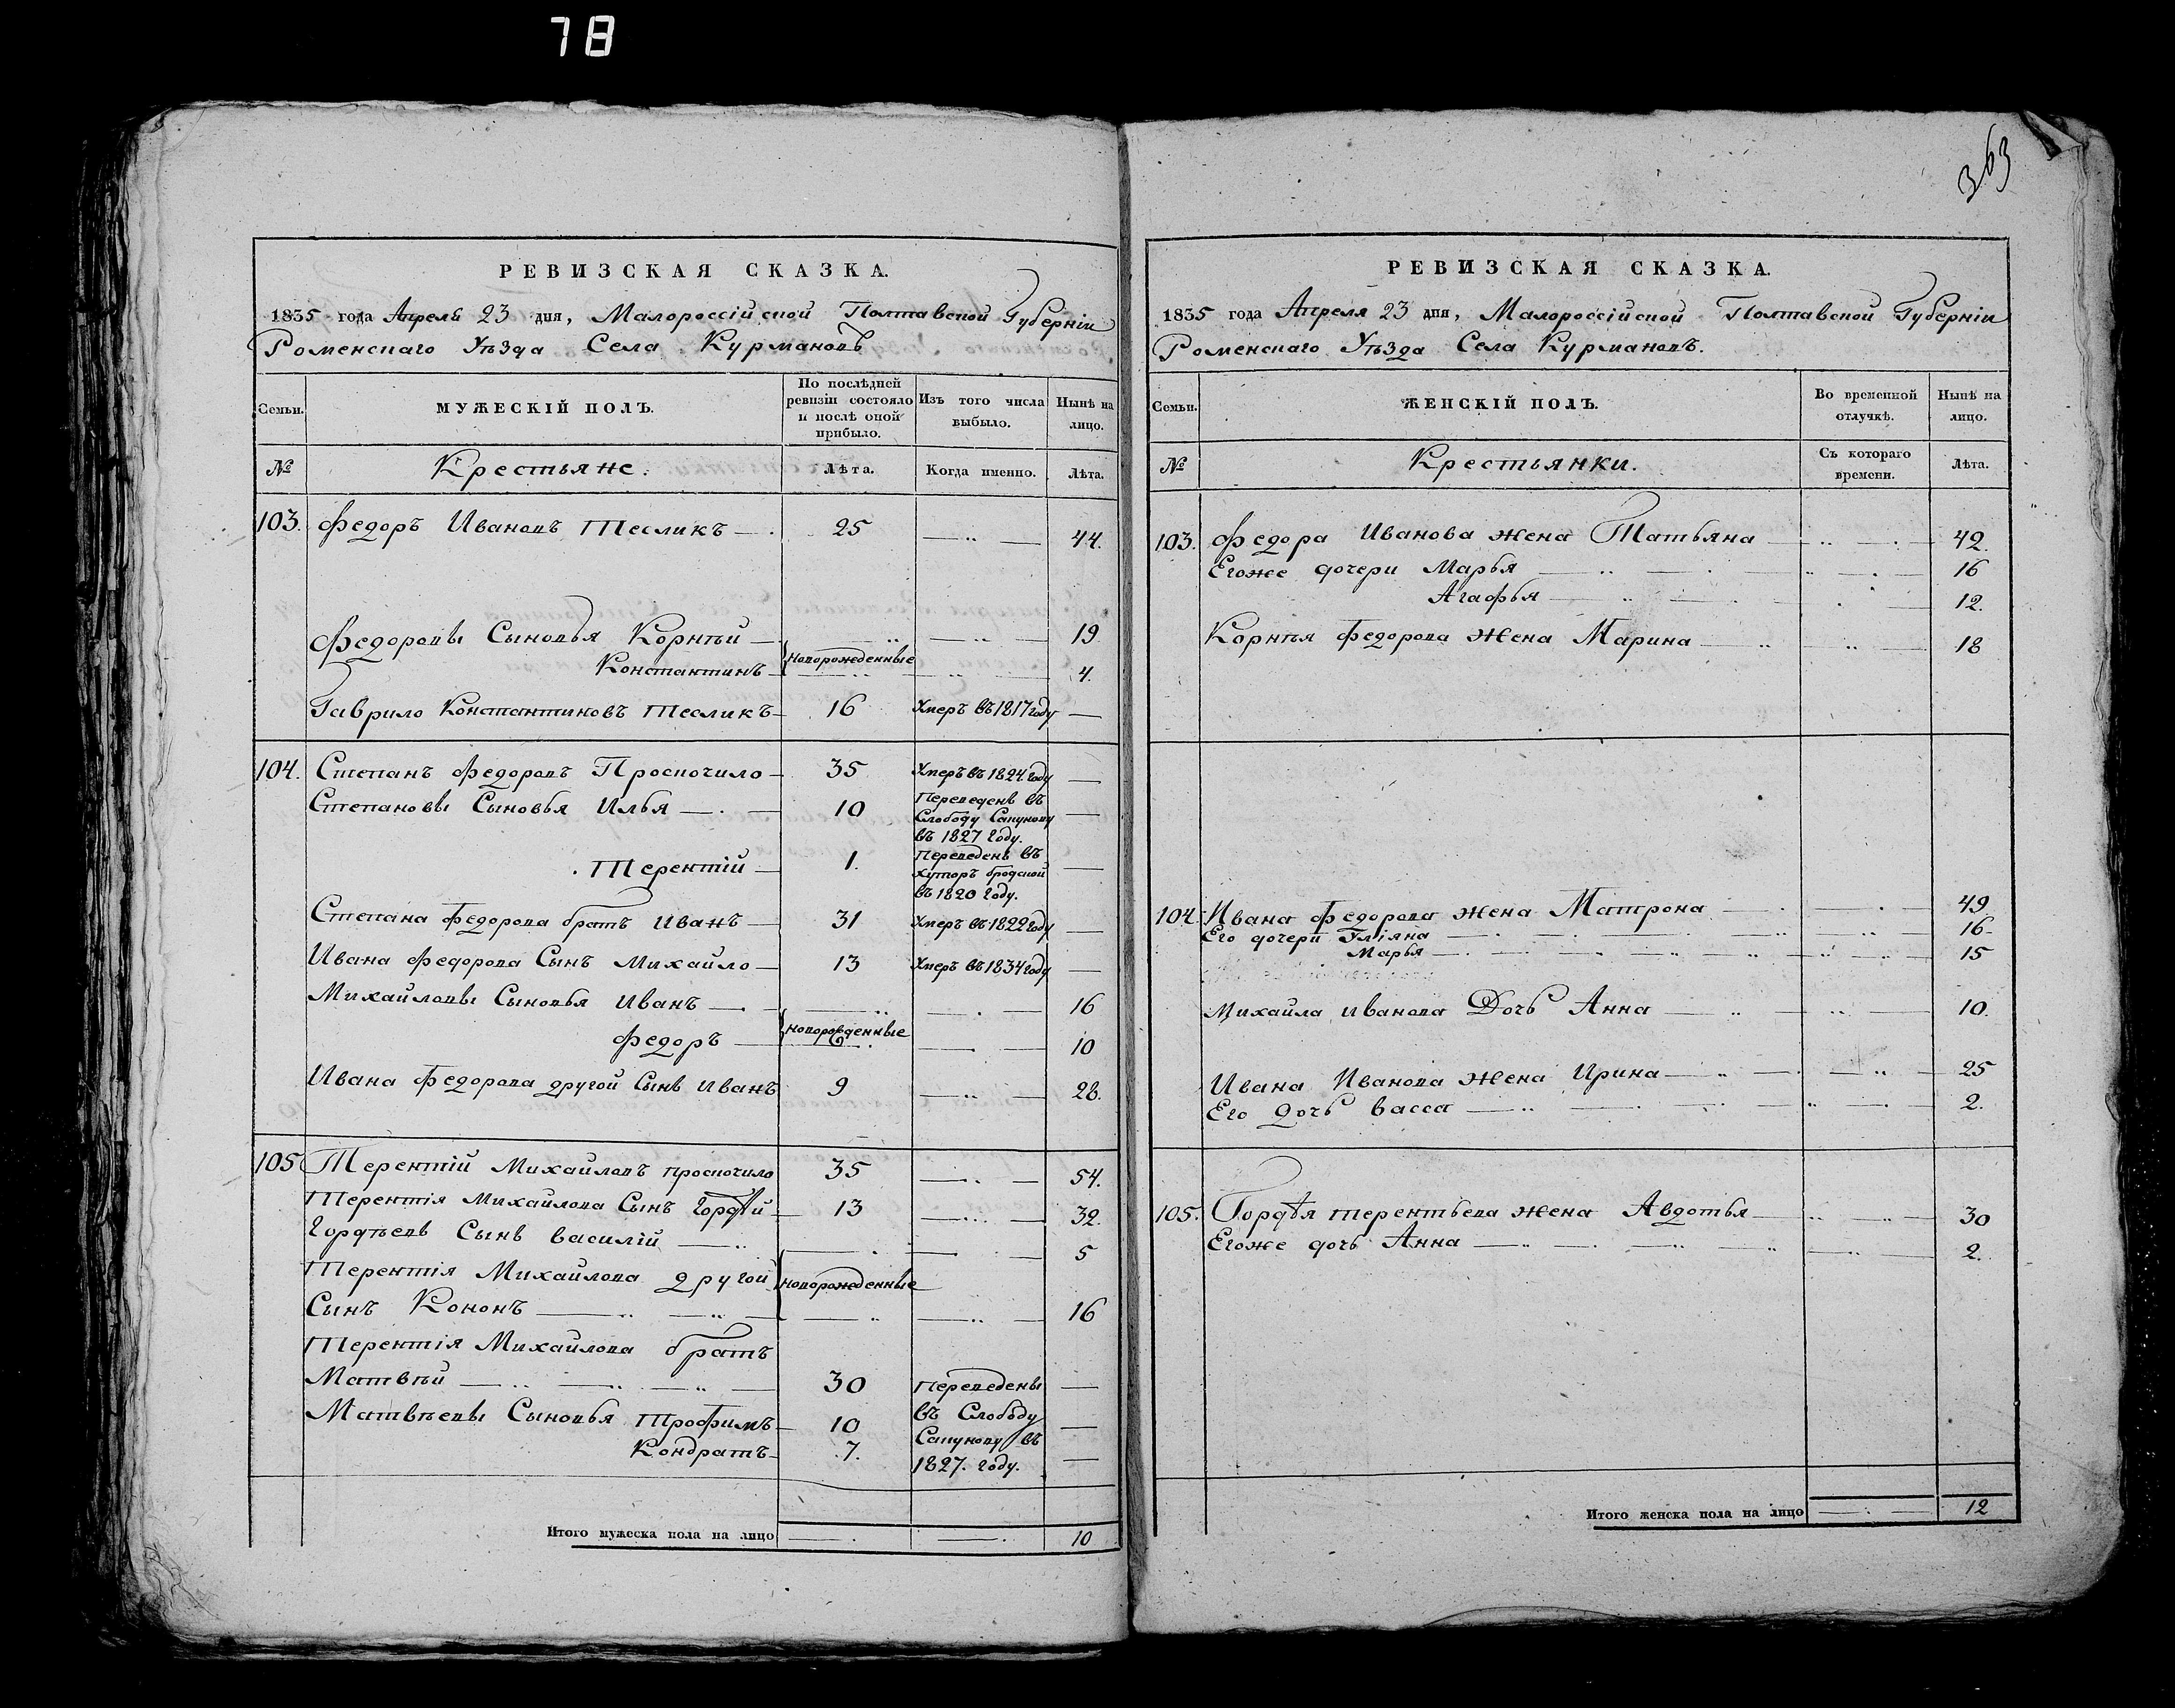 78
РЕВИЗСКАЯ СКАЗКА.
1835 года Апреля 23 дня, Малороссійской Полтавской Губерніи
Роменскаго Уѣзда Села Курмановъ
Семьи.
МУЖЕСКІЙ ПОЛЪ.
По послѣдней ревизіи состояло и послѣ оной прибыло.
Изъ того числа выбыло.
Нынѣ на лицо.
№
Крестьяне.
Лѣта.
Когда именно.
Лѣта.
103. Федоръ Ивановъ Тесликъ 25 44.
Федоровы Сыновья Корнѣй 19
новорожденные
Константинъ 4.
Гаврило Константиновъ Тесликъ 16 Умеръ въ 1817 году
104. Степанъ Федоровъ Проскочило 35 Умеръ въ 1824 году
Степановы Сыновья Илья 10 Переведенъ въ
Слободу Сапунову
въ 1827 Году.
Терентій 1. Переведенъ въ
Хуторъ бродской
въ 1820 Году.
Степана Федорова братъ Иванъ 31 Умеръ въ 1822 году
Ивана Федорова Сынъ Михайло 13 Умеръ въ 1834 году
Михайловы Сыновья Иванъ 16
новорожденные
Федоръ 10
Ивана Федорова другой Сынъ Иванъ 9 28.
105 Терентій Михайловъ Проскочило 35 54.
Терентія Михайлова Сынъ Гордѣй 13 32.
Гордѣевъ Сынъ Василій 5
Терентія Михайлова другой новорожденные
Сынъ Кононъ 16
Терентія Михайлова братъ
Матвѣй 30 Переведены
Матвѣевы Сыновья Трофимъ 10 въ Слободу
Сапунову въ
Кондратъ 7. 1827. Году.
Итого мужеска пола на лицо 10
363
РЕВИЗСКАЯ СКАЗКА.
1835 года Апреля 23 дня, Малороссійской Полтавской Губерніи
Роменскаго Уѣзда Села Курмановъ.
Семьи.
ЖЕНСКІЙ ПОЛЪ.
Во временной отлучкѣ.
Нынѣ на лицо.
№
Крестьянки.
Съ котораго времени.
Лѣта.
103. Федора Иванова жена Татьяна 42.
Егоже дочери Марья 16
Агафья 12.
Корнѣя Федорова жена Марина 18
104. Ивана Федорова жена Матрона 49
Его дочери Уліяна 16
Марья 15
Михайла Иванова Дочь Анна 10.
Ивана Иванова жена Ирина 25
Его дочь Васса 2.
105. Гордѣя Терентьева жена Авдотья 30
Егоже дочь Анна 2.
Итого женска пола на лицо 12